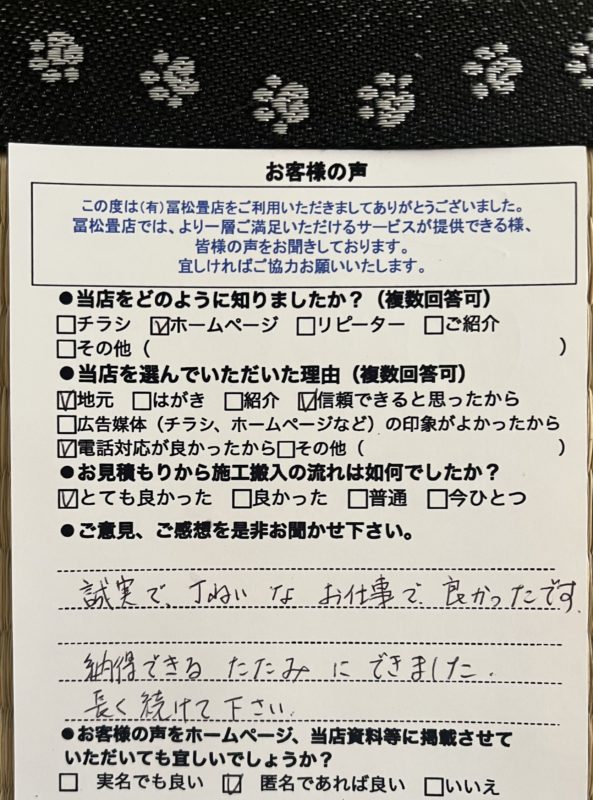 お客様の声
この度は(有)冨松畳店をご利用いただきましてありがとうございました。
冨松畳店では、より一層ご満足いただけるサービスが提供できる様、
皆様の声をお聞きしております。
宜しければご協力お願いいたします。
●当店をどのように知りましたか？（複数回答可）
□チラシ ☑ホームページ □リピーター □ご紹介
□その他（ ）
●当店を選んでいただいた理由（複数回答可）
☑地元 □はがき □紹介 ☑信頼できると思ったから
□広告媒体（チラシ、ホームページなど）の印象がよかったから
☑電話対応が良かったから□その他（ ）
●お見積もりから施工搬入の流れは如何でしたか？
☑とても良かった □良かった □普通 □今ひとつ
●ご意見、ご感想を是非お聞かせ下さい。
誠実で、丁ねいな お仕事で 良かったです.
納得できる たたみ に できました.
長く続けて下さい.
●お客様の声をホームページ、当店資料等に掲載させて
いただいても宜しいでしょうか？
□ 実名でも良い ☑ 匿名であれば良い □いいえ